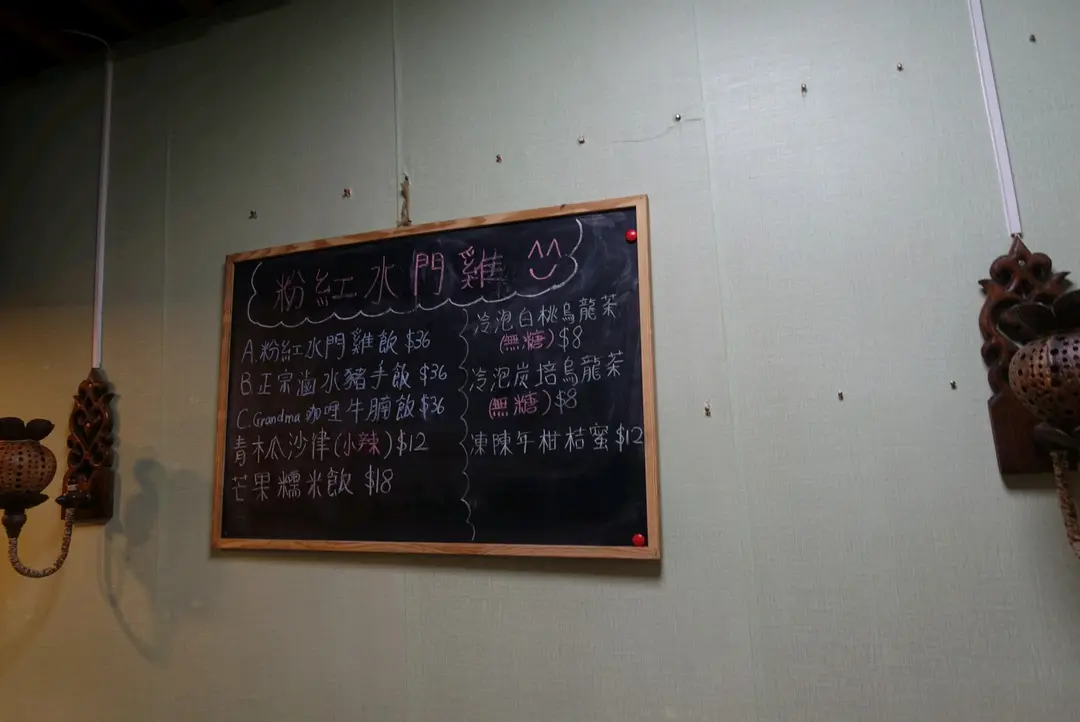 粉紅水門雞
A.粉紅水門雞飯 $36
B.正宗滷水豬手飯 $36
C.Grandma咖喱牛腩飯 $36
青木瓜沙律(小辣) $12
芒果糯米飯 $18
冷泡白桃烏龍茶
(無糖) $8
冷泡炭培烏龍茶
(無糖) $8
凍陳年柑桔蜜 $12